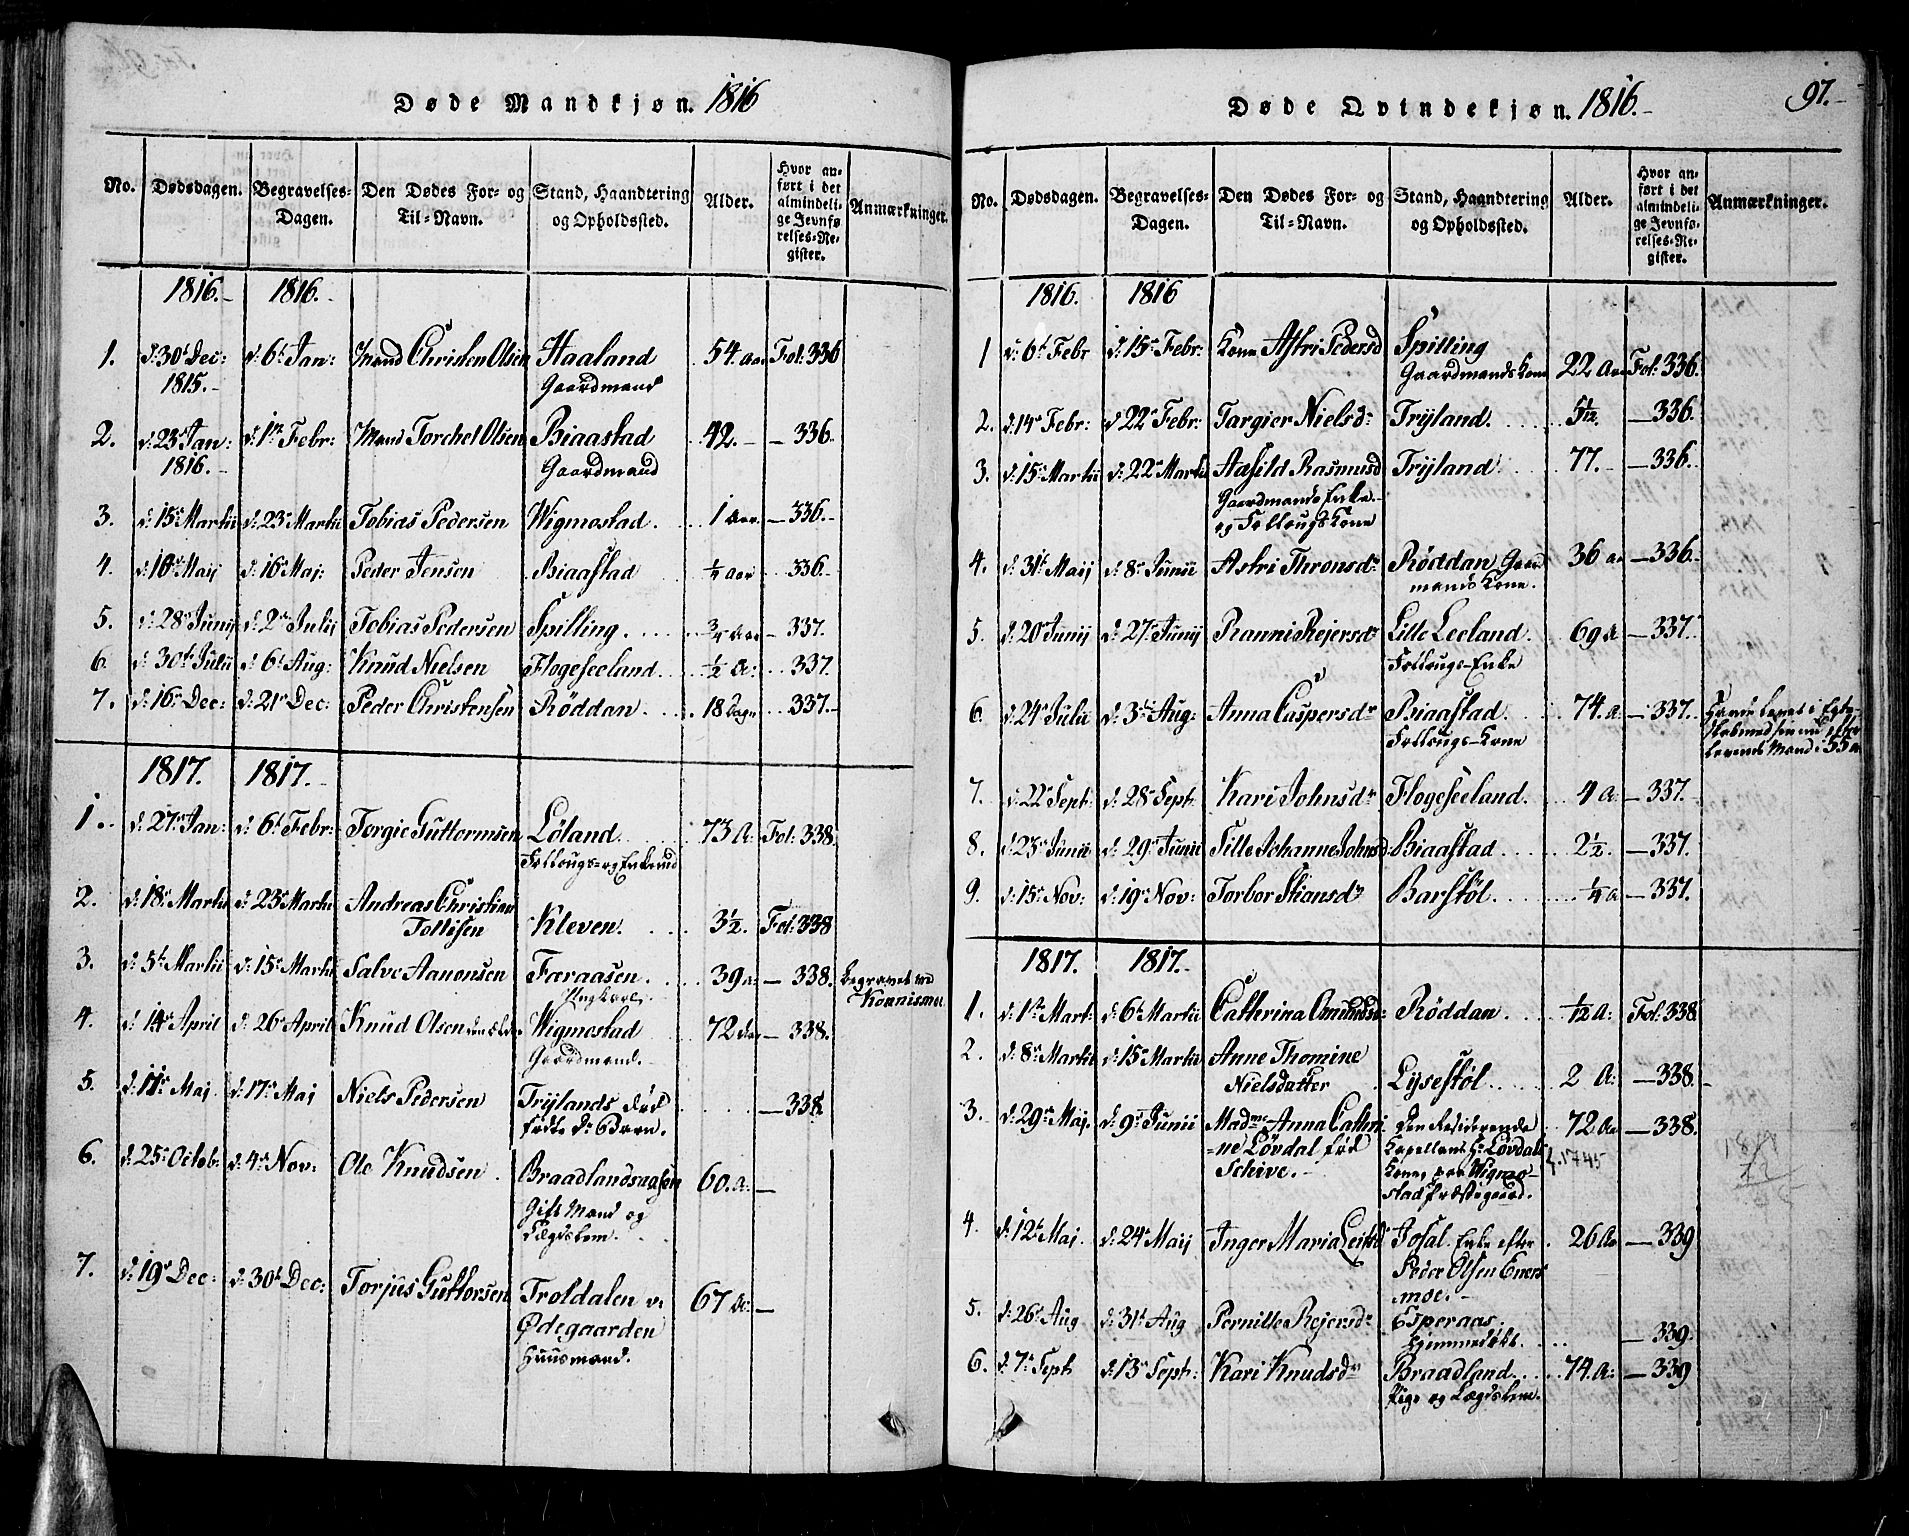 Døde Mandkjøn. 1816
No. Dødsdagen. Begravelses-Dagen. Den Dødes For- og Til-Navn. Stand, Haandtering og Opholdssted. Alder. Hvor anført i det almindelige Jevnførelses-Register. Anmærkninger.
1816. 1816.
1. d: 30t Dec: 1815. d: 6t Jan: Mand Christen Olsen Haaland Gaardmand 54 aar Fol: 336
2. d: 23 Jan: 1816. d: 1ste Febr: Mand Torchel Olsen Biaastad Gaardmand 42. 336.
3. d: 15 Martii d: 23 Martii Tobias Pedersen Wigmostad. 1 aar 336.
4. d: 10 Maij d: 16 Maj: Peder Jensen Biaastad ¼ aar 336.
5. d: 28 Junij d: 2 Julij Tobias Pedersen Spilling. ¾ aar 337.
6. d: 30t Julii d: 6t Aug: Knud Nielsen Flogeseeland. ½ a: 337.
7. d: 16 Dec: d: 21 Dec: Peder Christensen Røddan. 18 dage 337.
1817. 1817.
1. d: 27 Jan: d: 6t Febr: Torgie Guttormsen Løland. Follougs- og Enkemd 73 A: Fol: 338.
2. d: 18 Martii d: 23 Martii Andreas Christian Tollisen Kleven. 3½. Fol: 338
3. d: 5t Martii d: 15 Martii Salve Aanonsen Faraasen. Ungkarl 39 a: 338. begravet ved Konnismoe
4. d: 14 April d: 26 April Knud Olsen den ældre Wigmostad Gaardmand. 72 338.
5. d: 11 Maj d: 17 Maj Niels Pedersen Trylands død fødte D: Barn. 338.
6. d: 25 Octob: d: 4 Nov: Ole Knudsen Braadlandsaasen Gift Mand og Lægdslem. 60. a:
7. d: 19 Dec: d: 30t Dec: Torjus Guttorsen Troldalen v. Ødegaarden Huusmand. 67 a:
Døde Qvindekjøn. 1816.
97.
No. Dødsdagen. Begravelses-Dagen. Den Dødes For- og Til-Navn. Stand, Haandtering og Opholdssted. Alder. Hvor anført i det almindelige Jevnførelses-Register. Anmærkninger.
1816. 1816
1 d: 6t Febr d: 15 Febr: Kone Astri Pedersd Spilling Gaardmands Kone 22 aar Fol: 336.
2. d: 14 Febr: d 22 Febr: Targier Nielsdr Tryland. 5/12. 336.
3. d: 15 Martii d: 22 Martii Aasild Rasmusd Gaardmands Enke og Follougs Kone Tryland 77. 336.
4. d: 31t Maij d: 8 Junii Astri Thronsdr Røddan Gaardmands Kone. 36 a 336.
5. d: 20 Junij d: 27 Junij Ranni Rejersdr Lille Leeland. Follougs-Enke 69 A 337.
6. d: 24 Julii d: 3die Aug: Anna Caspersdr Biaastad. Follougs-Kone 74. a: 337. Havde levet i Egteskab med sin nu efterlevende Mand i 55 a
7. d: 22 Sept: d: 28 Sept: Kari Johnsdr Flogeseeland. 4 a: 337.
8. d: 23 Junii d: 29 Junii Sille Johanne Johnsd: Biaastad 2½. 337.
9. d: 15 Nov: d: 19 Nov: Torbor Stiansdr Barstøl ¼ a 337.
1817. 1817.
1. d: 1ste Mart: d: 6t Martii Cathrina Omundsd: Røddan. ½ A: Fol: 338
2. d: 8 Martii d: 15 Martii Anne Thomine Nielsdatter Lysestøl. 2 A: 338.
3. d: 29 Maj. d: 9 Junii Madme Anna Cathrine Løvdal fød Schive. Den Residerende Kapellans Hr Lovdals Kone, paa Wigmostad Præstegaard. 72 Aar 338. f. 1745
1817 72
4. d: 12t Maj. d: 24 Maij Inger Maria Leifsd Josal. Enke efter Peder Olsen Eversmoe. 26 Aar 339
5. d: 26 Aug d: 31t Aug Pernille Rejersdr Esperaas. hjemmedøbt. 339.
6. d: 7 Sept d: 13 Sept: Kari Knudsdr Braadland. Pige og Lægdslem. 74. A: 339